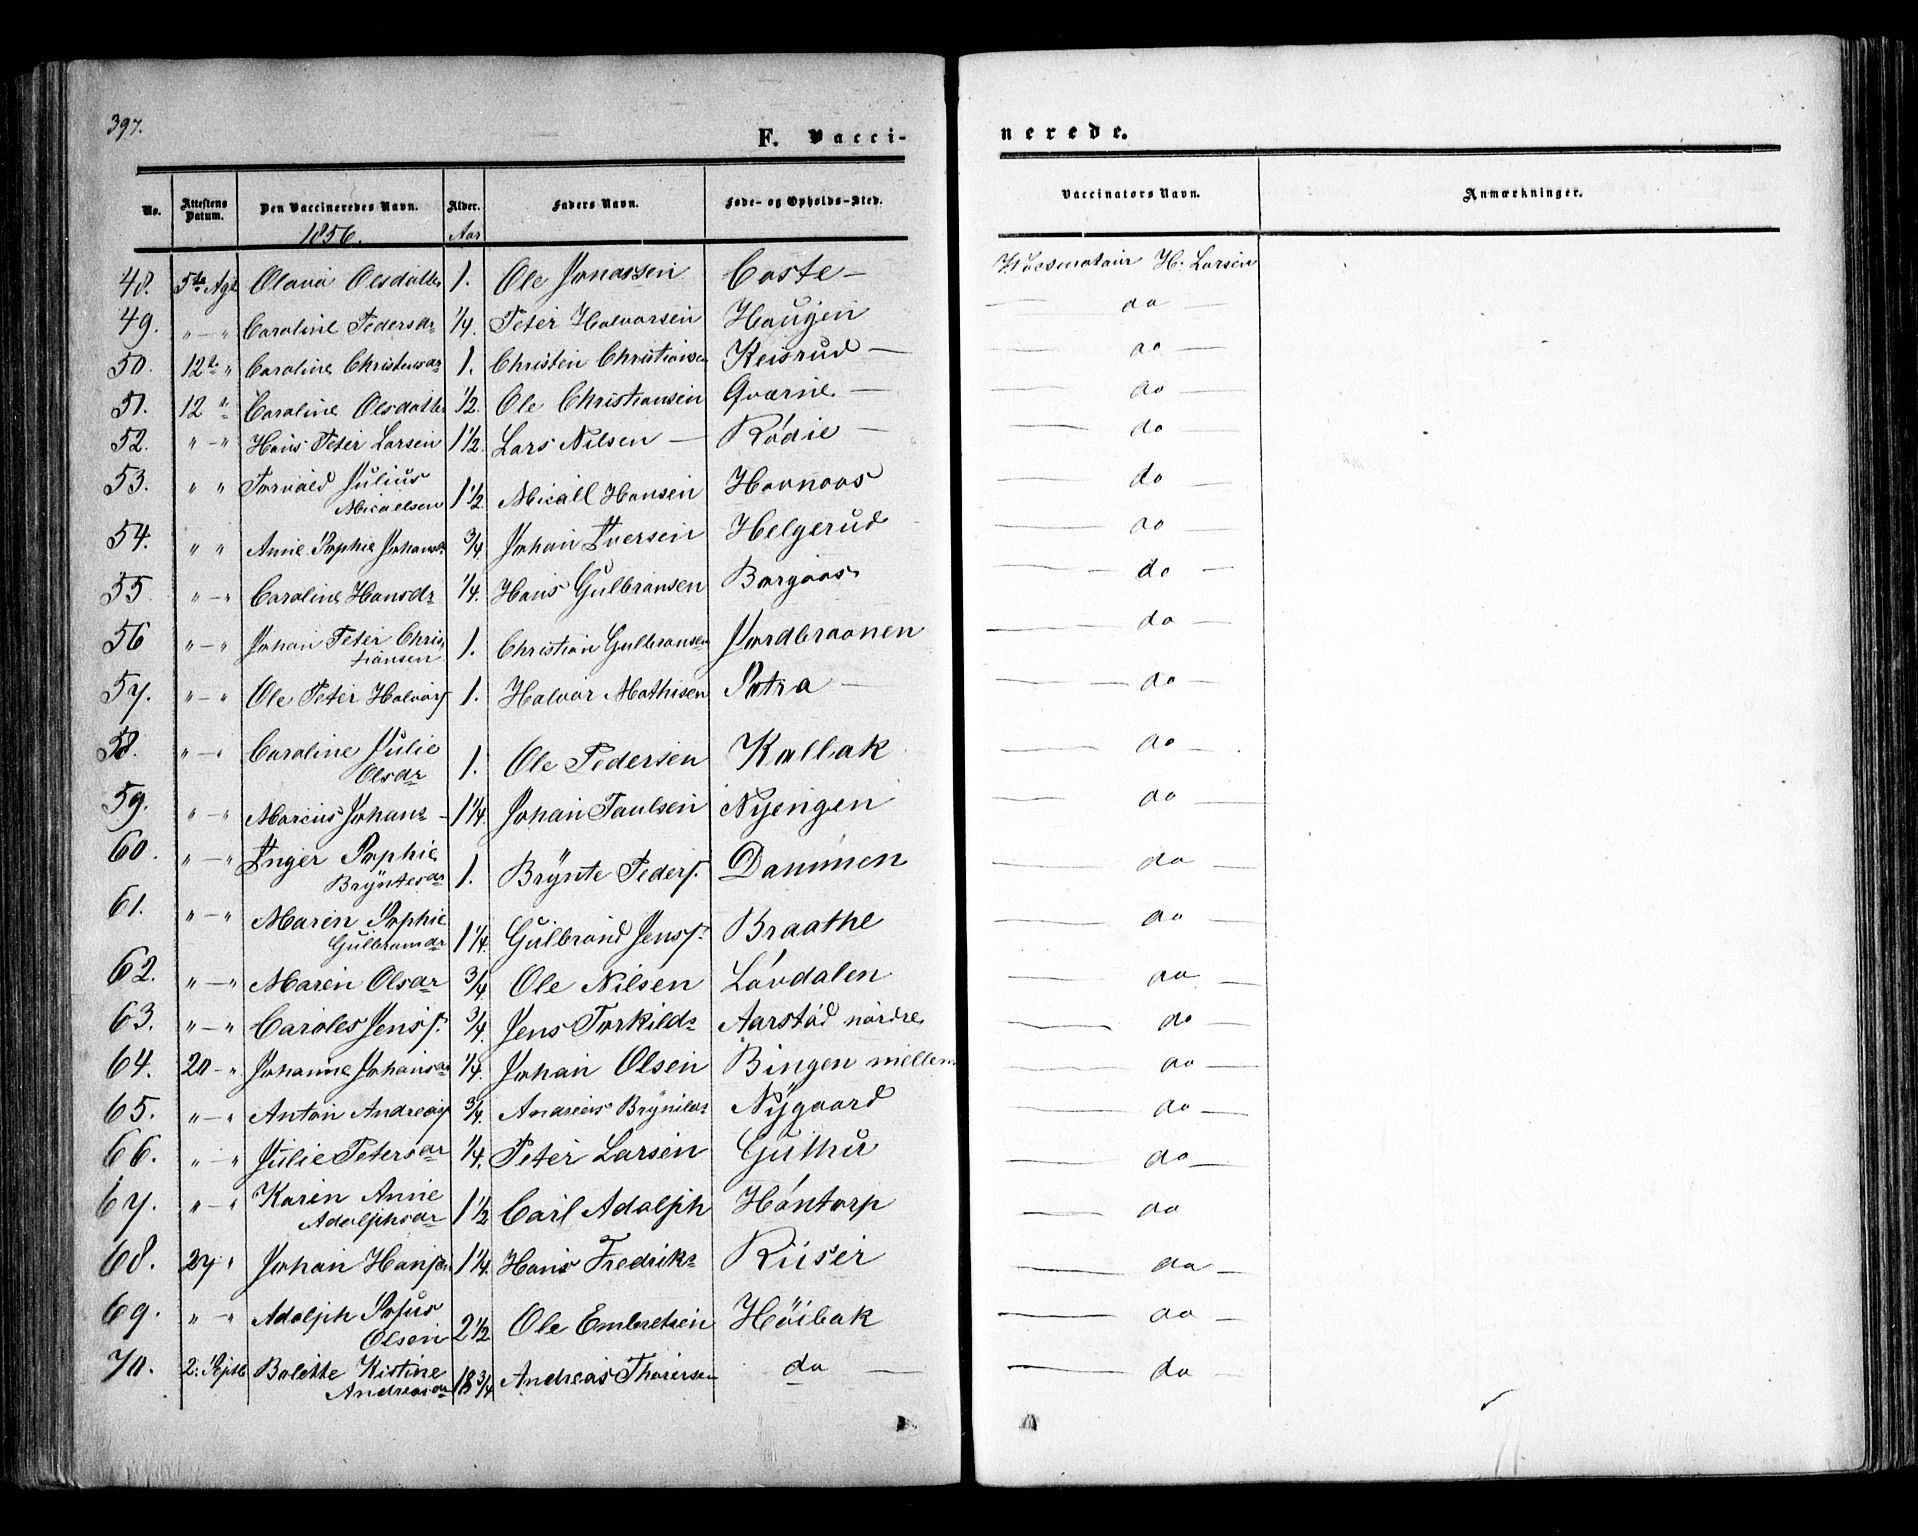 397.
F. Vacci-
nerede.
No. Attestens Datum. Den Vaccineredes Navn. Alder. Faders Navn. Føde- og Opholds-Sted. Vaccinators Navn. Anmærkninger.
1856. Aar
48. 5te Agt Olava Olsdatter 1. Ole Jonassen Coste — H. Larsen
49. " — " Caroline Pedersdr 1/4. Peter Halvorsen Haugen — do —
50. 12te " Caroline Christensdr 1. Christen Christiansen Keisrud — — do —
51. 12 " Caroline Olsdatter 1/2. Ole Christiansen Qværne — — do —
52. " — " Hans Peter Larsen 1 1/2 Lars Nilsen — Rødie — — do —
53. " " Torvald Julius
Micaelsen 1 1/2 Micall Hansen Havnaas — do
54. " " Anne Sophie Johansdr 3/4. Johan Iversen Helgerud — do
55 " — " Caroline Hansdr 1/4. Hans Gulbransen Borgaas — do —
56 " — " Johan Peter Chris
tiansen 1. Christian Gulbransen Jordbraanen — do —
57. " — " Ole Peter Halvors. 1. Halvor Mathisen Potra — — do —
58. " — " Caroline Julie
Olsdr 1. Ole Pedersen Kallak — do —
59. " — " Marius Johans — 1 1/4. Johan Paulsen Nyengen — do —
60. " — " Inger Sophie
Bryntesdr 1. Brynte Peders. Dammen — do —
61. " — " Maren Sophie
Gulbransdr 1 1/4. Gulbrand Jens. Braathe — do —
62. " — " Maren Olsdr 3/4 Ole Nilsen Løvdalen — do —
63. " — " Caroles Jens. 3/4. Jens Torkilds Aarstad nordre — do —
64. 20 — " Johanne Johansdr 1/4. Johan Olsen Bingen mellem — do —
65. " — " Anton Andreas. 3/4. Andreas Brynilds Nygaard — do —
66. " — " Julie Petersdr 1/4. Peter Larsen Guthu — do —
67. " — " Karen Anne
Adolphsdr 1 1/2 Carl Adolph Høntorp — do
68. 27 " Johan Hansen 1 1/4. Hans Fredriks Riiser — do —
69. " — " Adolph Sofus
Olsen 2 1/2 Ole Embretsen Høibak — do —
70. 2: Septb Bolette Kistine
Andreasdr 18 3/4 Andreas Thorersen do — — do —